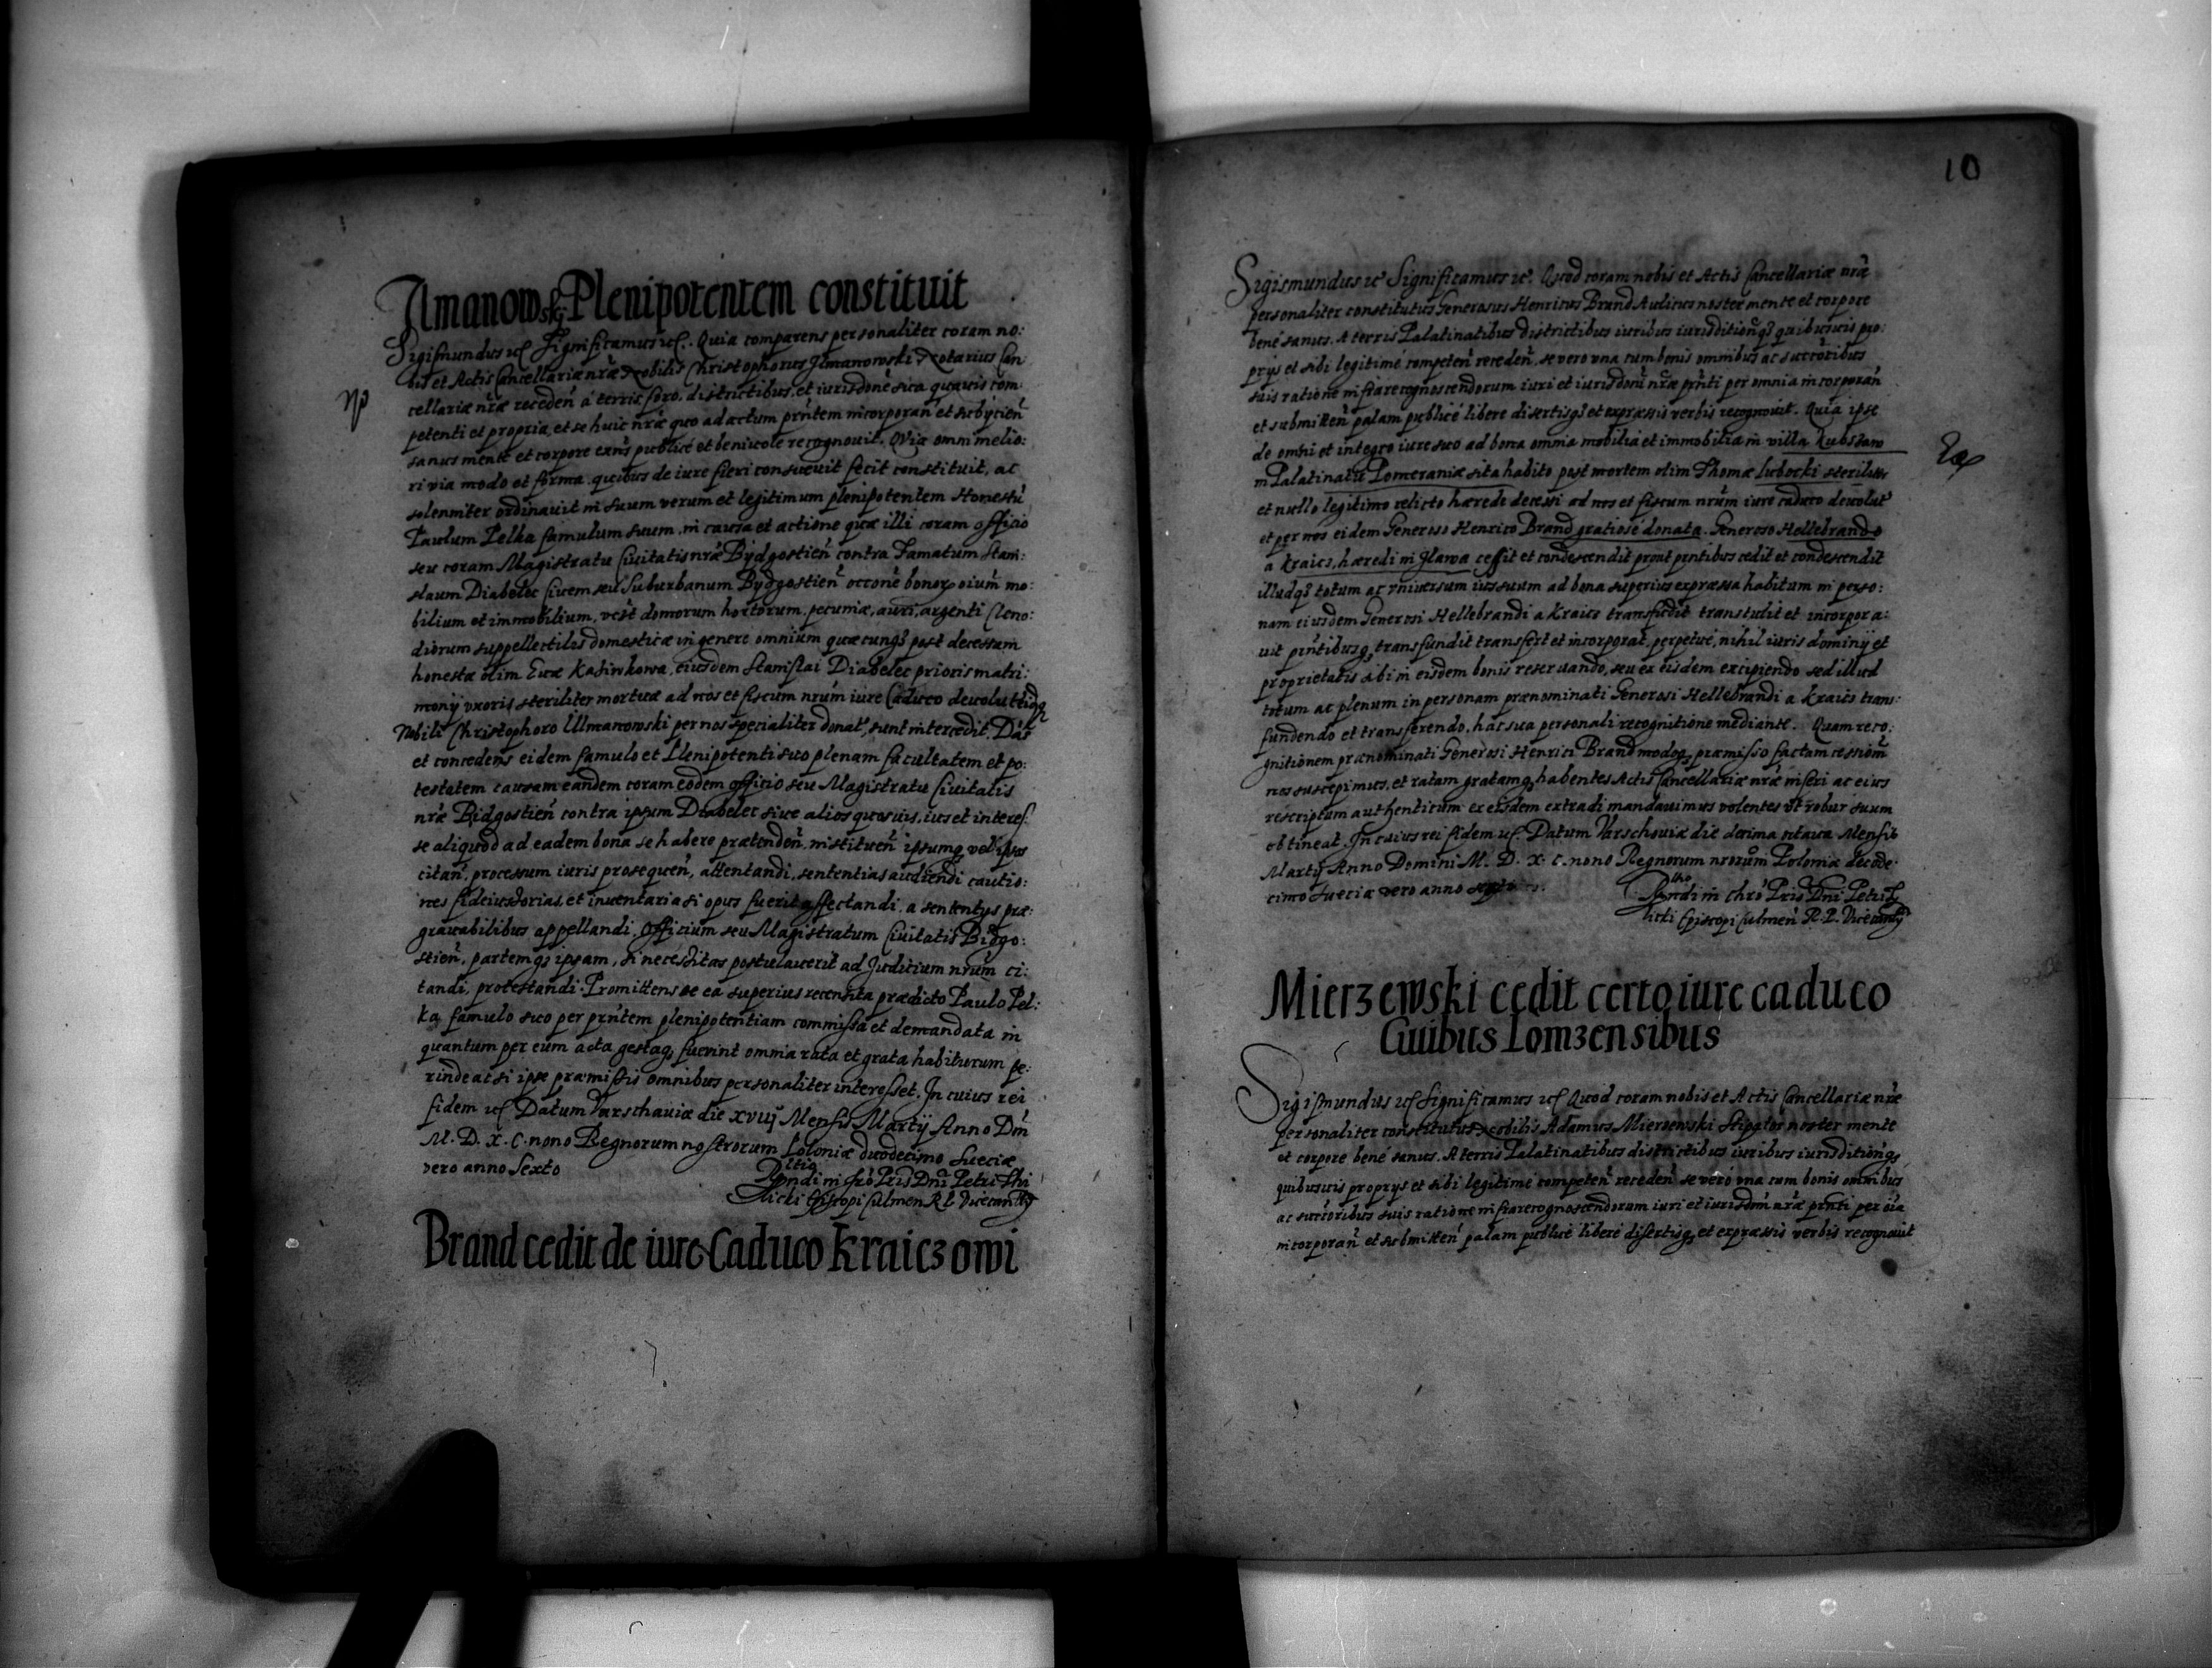 Ilmanowskj Plenipotentem constituit
Sigismundus etc Significamus etc. Quia comparens personaliter coram no:
bis et Actis Cancellariæ nræ Nobilis Christophorus Ilmanowski Notarius Can
cellariæ nræ receden a terris foro, districtibus, et iurisdone sua quauis com
petenti et propria, et se huic nræ quo ad actum prntem incorporan et subÿcien
sanus mente et corpore exns publicé et beniuole recognouit. Quia omni melio:
ri via modo et forma quibus de iure fieri consueuit fecit constituit, ac
solenniter ordinauit in suum verum et legitimum plenipotentem Honestu
Paulum Pelka famulum suum, in causa et actione quæ illi coram officio
seu coram Magistratu Ciuitatis nræ Bydgostien contra Famatum Stani:
slaum Diabelec Ciuem seu Suburbanum Bydgostien occone bonor oium mo:
bilium et immobilium, vest domorum hortorum, pecuniæ, auri, argenti Cleno:
diorum suppellectilis domesticæ in genere omnium quæcunq post decessum
honestæ olim Euæ Kasinkowa, eiusdem Stanislai Diabelec prioris matri:
monÿ vxoris steriliter mortuæ ad nos et fiscum nrum iure Caduco deuolut
Nobili Christophoro Ulmanowski per nos specialiter donat, sunt intercedit. Das
et concedens eidem famulo et Plenipotenti suo plenam facultatem et po:
testatem causam eandem coram eodem officio seu Magistratu Ciuitatis
nræ Bidgostien contra ipsum Diabelec siue alios quosuis, ius et interes
se aliquod ad eadem bona se habere prætenden, instituen ipsumq vel ipsos
citan, processum iuris prosequen, attentandi, sententias audiendi cautio:
nes fideiussorias, et inuentaria si opus fuerit affectandi, a sententÿs præ:
grauabilibus appellandi, Officium seu Magistratum Ciuitatis Bidgo:
stien, partemq ipsam, si necessitas postulauerit ad Juditium nrum ci:
tandi, protestandi. Promittens se ea superius recensita prædicto Paulo Pel:
ka famulo suo per prntem plenipotentiam commissa et demandata in
quantum per eum acta gestaq fuerint omnia rata et grata habiturum pe:
rinde ac si ipse præmissis omnibus personaliter interesset. In cuius rei
fidem etc Datum Varschauiæ die xviij Mensis Martÿ Anno Dni
M. D. X. C. nono Regnorum nostrorum Poloniæ duodecimo Sueciæ
vero anno Sexto
Rndi in Chro Pris Dni Petri Thi
licki Episcopi Culmen R. P. Vicecanrÿ
Brand cedit de iure Caduco Kraiczowi
10
Sigismundus etc Significamus etc. Quod coram nobis et Actis Cancellariæ nræ
personaliter constitutus Generosus Henricus Brand Aulicus noster mente et corpore
bené sanus. A terris Palatinatibus districtibus iuribus iurisditionq quibusuis pro:
prÿs et sibi legitimé competen receden, se vero vna cum bonis omnibus ac succoribus
suis ratione infrarecognoscendorum iuri et iurisdoni nræ prnti per omnia incorporan
et submitten palam publicé libere disertisq et expræssis verbis recognouit. Quia ipse
de omni et integro iure suo ad bona omnia mobilia et immobilia in villa Lubstow
in Palatinatu Pomeraniæ sita habito post mortem olim Thomæ Lubocki steriliter
et nullo legitimo relicto hærede decessi ad nos et fiscum nrum iure caduco deuolut
et per nos eidem Generoso Henrico Brand gratiosé donata. Generoso Hellebrando
a Kraics, hæredi in Ilawa cessit et condescendit prout prntibus cedit et condescendit
illudq totum ac vniuersum ius suum ad bona superius expræssa habitum in perso:
nam eiusdem Generosi Hellebrandi a Kraics transfudit transtulit et incorpora:
uit prntibusq transfundit transfert et incorporat, perpetué, nihil iuris dominÿ et
proprietatis sibi in eisdem bonis reseruando, seu ex eisdem excipiendo sed illud
totum ac plenum in personam prænominati Generosi Hellebrandi a Kraics trans:
fundendo et transferendo, hac sua personali recognitione mediante. Quam reco:
gnitionem prænominati Generosi Henrici Brand modoq præmisso factam cessiom
nos suscepimus, et ratam gratamq habentes Actis Cancellariæ nræ inseri ac eius
rescriptum authenticum ex eisdem extradi mandauimus volentes vt robur suum
obtineat. In cuius rei fidem etc Datum Varschouiæ die decima octaua Mensis
Martÿ Anno Domini M. D. X. C. nono Regnorum nrorum Poloniæ duode:
cimo Sueciæ vero anno
Rndi in Chro Pris Dni Petri Ty
licki Episcopi Culmen R. P. Vicecanrÿ
Mierzewski cedit certo iure caduco
Ciuibus Lomzensibus
Sigismundus etc Significamus etc Quod coram nobis et Actis Cancellariæ nræ
personaliter constitutus Nobilis Adamus Mierzewski Stipator noster mente
et corpore bené sanus. A terris Palatinatibus districtibus iuribus iurisditionq
quibusuis proprÿs et sibi legitimé competen receden se veró vna cum bonis omnibus
ac succoribus suis ratione infrarecognoscendorum iuri et iurisdoni nræ prnti per oia
incorporan et submitten palam publicé liberé disertisq et expræssis verbis recognouit